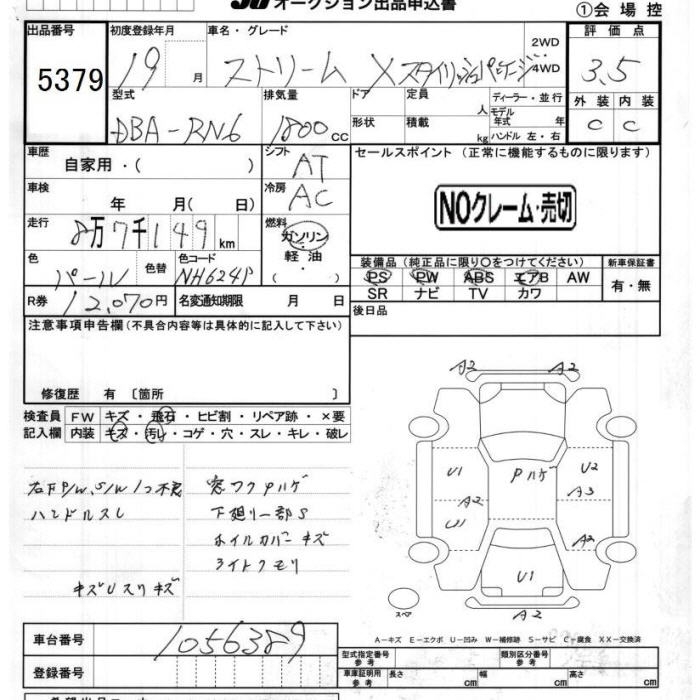 オークション出品申込書
①会場控
出品番号
5379
初度登録年月
19 月
車名・グレード
ストリーム X スタイリッシュパッケージ
2WD
4WD
評価点
3.5
型式
DBA-RN6
排気量
1800 cc
ドア
形状
定員
人
積載
kg
ディーラー・並行
モデル
年式 年
ハンドル 左・右
外装 内装
C C
車歴
自家用・( )
シフト
AT
セールスポイント (正常に機能するものに限ります)
車検
年 月( 日)
冷房
AC
NOクレーム・売切
走行
8万7千149km
燃料
ガソリン
軽油
( )
色
パール
色替
色コード
NH624P
装備品(純正品に限り○をつけてください)
新車保証書
PS PW ABS エアB AW
SR ナビ TV カワ
有・無
R券
12,070円
名変通知期限 月 日
後日品
注意事項申告欄(不具合内容等は具体的に記入して下さい)
修復歴 有 〔箇所 〕
検査員
記入欄
FW キズ・飛石・ヒビ割・リペア跡・×要
内装 キズ・汚れ・コゲ・穴・スレ・キレ・破レ
右F P/W、S/W 1つ不良
ハンドルスレ
キズUスリキズ
窓ワクPハゲ
下廻り一部S
ホイルカバーキズ
ライトクモリ
A2 A2
U1 Pハゲ U2
A2 A3
U1 A2
U1
A2
スペア
A−キズ E−エクボ U−凹み W−補修跡 S−サビ C−腐食 XX−交換済
車台番号
1056389
登録番号
型式指定番号
参考
類別区分番号
参考
車庫証明用
参考
長さ cm 幅 cm 高さ cm